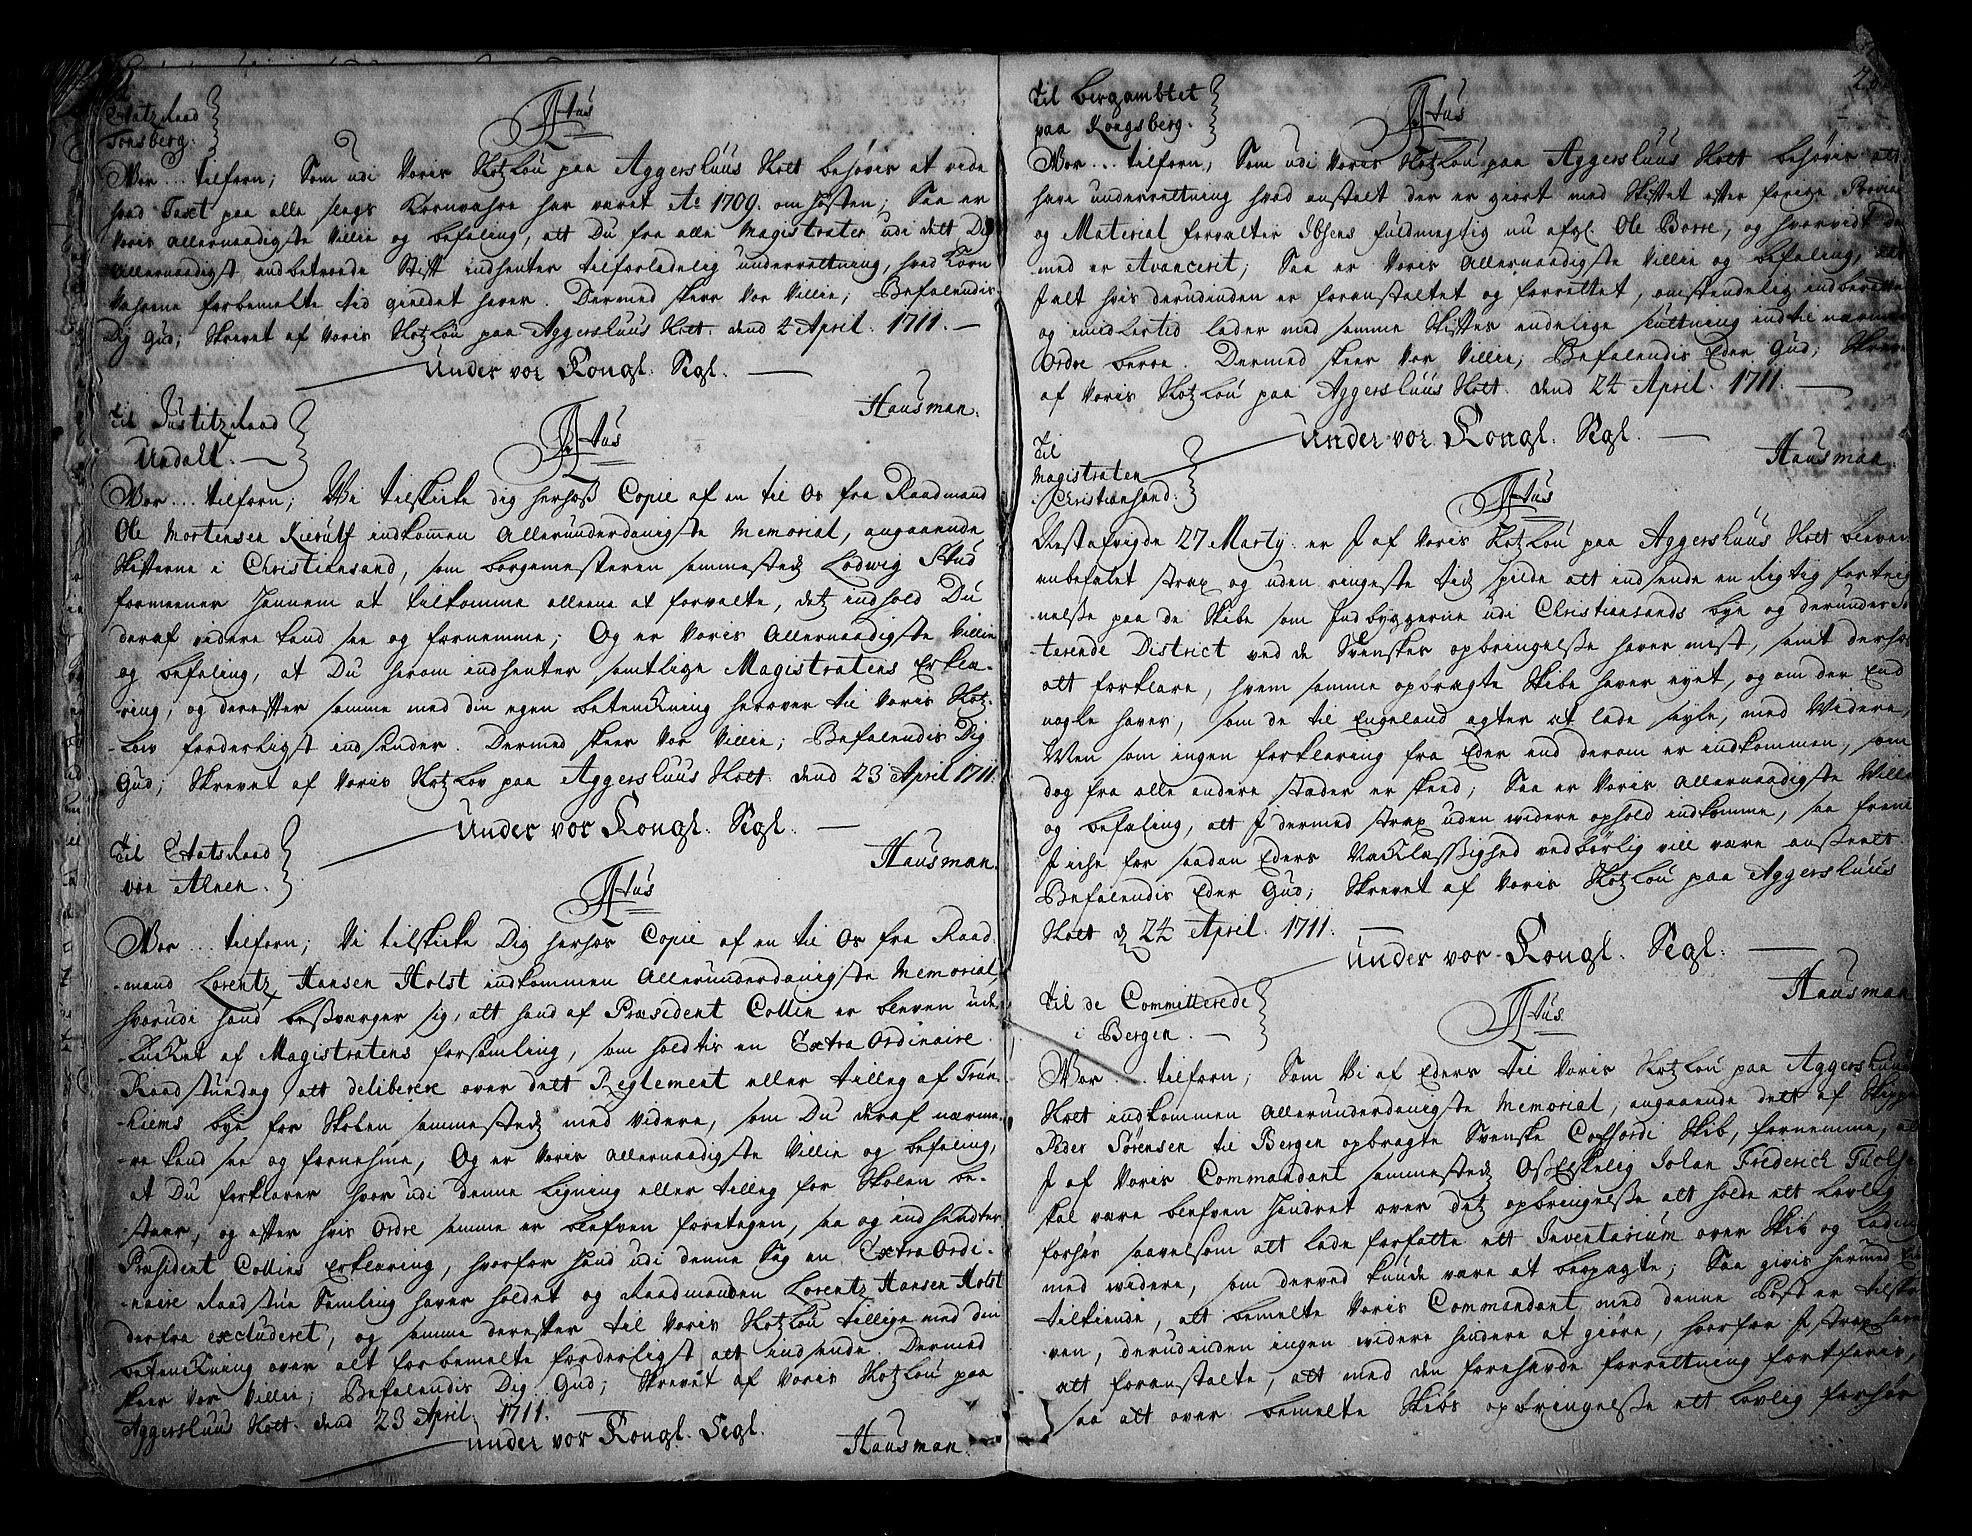 Etatz Raad
Tonsberg.
Atus
Wor... tilforn; Som udi Voris Slotzlou paa Aggershuus Slott behøves at vide
hvad Taxt paa alle slags Kornvahre har været Ao 1709. om høsten; Saa er
Voris allernaadigste Villie og befaling, att Du fra alle Magistrater udi dett Dig
allernaadigst anbetroede Stift indhenter tilforladelig underrettning, hvad Korn
Vahrene forbemelte tid gieldet haver. Dermed skeer Vor Villie; Befalendis
Dig Gud; Skrevet af Voris Slotzlou paa Aggershuus Slott. dend 4 April. 1711.
Under vor Kongl. Segl.
Hausman.
Til Justitz Raad
Undall.
Atus
Wor... tilforn; Wi tilskicke dig herhoss Copie af en til Os fra Raadmand
Ole Mortensen Kierulf indkommen Allerunderdanigste Memorial, angaaende
Skifterne i Christiansand, som borgemesteren sammestedz Lodwig Stud
formeener hannem at tilkomme alleene at forvalte, detz indhold Du
deraf videre kand see og fornemme; Og er Voris Allernaadigste Villie
og befaling, at Du herom indhenter samtlige Magistratens Erklæ-
-ring, og derefter samme med din egen betenckning herover til Voris Slotz-
-lov forderligst indsender. Dermed skeer Vor Villie; Befalendis Dig
Gud; Skrevet af Voris Slotzlov paa Aggershuus Slott. dend 23 April 1711.
Under vor Kongl. Segl.
Hausman.
Til Etats Raad
von Ahnen.
Atus
Wor... tilforn; Vi tilskicke Dig herhos Copie af en til Os fra Raad-
-mand Lorentz Hansen Holst indkommen Allerunderdanigste Memorial,
hvorudi hand beswærger sig, att hand af Præsident Collin er bleven ude-
-lucket af Magistratens forsamling, som holdtis en Extra Ordinaire
Raadstuedag att deliberere over dett Reglement eller tilleg af Trun-
-hiems bye for Skolen sammestedz med videre, som Du deraf nærme-
-re kand see og fornehme; Og er Voris Allernaadigste Villie og befaling,
at Du forklarer hvor udi denne Ligning eller tilleg for Skolen be-
-staar, og efter hvis Ordre samme er blefven foretagen, saa og indhendter
Præsident Collins Erklæring, hvorfor hand udi denne Sag en Extra Ordi-
-naire Raadstue Samling haver holdet og Raadmanden Lorentz Hansen Holst
derfra excluderet, og samme derefter til Voris Slotzlou tillige med din
betenckning over alt forbemelte forderligst att indsende. Dermed
skeer Vor Villie; Befalendis Dig Gud; Skrevet af Voris Slotzlou paa
Aggershuus Slott. dend 23 April 1711.
under vor Kongl. Segl.
Hausman.
Til Bergambtet
paa Kongsberg.
Atus
Wor... tilforn; Som udi Voris Slotzlou paa Aggershuus Slott behøvis att
have underrettning hvad anstalt der er giort med Skiftet efter forige Provia
og Material forvalter Ibsens fuldmegtig nu afgl. Ole Borre, og hvorvidt der
med er Avancerit; Saa er Voris Allernaadigste Villie og befaling, att
I alt hvis derudinden er foranstaltet og forrettet, omstendelig indberette
og imidlertid lader med samme Skiftes endelige sluttning indtil nærme
Ordre beroe. Dermed skeer Vor Villie; Befalendis Eder Gud; Skrev
af Voris Slotzlou paa Aggershuus Slott. dend 24 April. 1711.
Under vor Kongl. Segl.
Hausman.
Til
Magistraten
i Christiansand.
Atus
Nestafvigde 27 Marty er I af Voris Slotzlou paa Aggershuus Slott bleven
anbefalet strax og uden ringeste tidz spilde att indsende en rigtig forteig
-nelse paa de Skibe som Indbyggerne udi Christiansands bye og derunder So
-terende District ved de Svenskes opbringelse haver mest, samt derhos
att forklare, hvem samme opbragte Skibe haver eyet, og om der End
nogle haves, som de til Engeland agter at lade seyle, med Widere,
Men som ingen forklaring fra Eder end derom er indkommen, som
dog fra alle andre stæder er skeed; Saa er Voris Allernaadigste Willie
og befaling, att I dermed strax uden widere ophold indkomme, saa fremt
I icke for saadan Eders Nacklæssighed vedbørlig vill være ansteatt
Befalendis Eder Gud; Skrevet af Voris Slotzlou paa Aggershuus
Slott d 24 April. 1711.
Under vor Kongl. Segl.
Hausman
Til de Committerede
i Bergen.
Atus
Wor... tilforn; Som Wi af Eders til Voris Slotzlou paa Aggershuus
Slott indkommen Allerunderdanigste Memorial, angaaende dett af Skipper
Peder Sørensen til Bergen opbragte Svenske Coffardi Skib, fornemme, at
I af Voris Commandant sammestedz Os Elskelig Johan Frederich
skal være blefven hindret over detz opbringelse att holde ett lovlig
forhør saavelsom att lade forfatte ett Inventarium over Skib og Ladning
med widere, som derved kunde være at beopagte; Saa givis hermed Eder
tilkiende, att bemelte Voris Commandant med denne Post er tilskre
-ven, derudinden ingen widere hindere at giøre, hvorfor I strax haver
att foranstalte, att med den forehavde forrettning fortfares,
saa att over bemelte Skibs opbringelse ett lovlig forhør